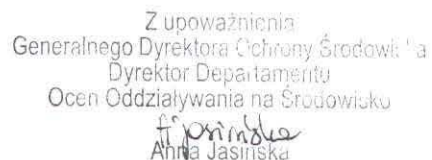 Z upoważnienia
Generalnego Dyrektora Ochrony Środowiska
Dyrektor Departamentu
Ocen Oddziaływania na Środowisko
A. Jasińska
Anna Jasińska